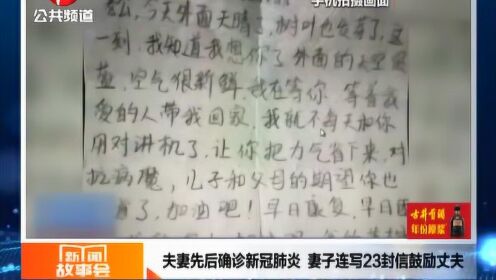 公共频道
手机拍摄画面
老公,今天外面天晴了,树叶也发芽了,这
一刻,我知道我想你了外面的天空蔚
蓝,空气很新鲜,我在等你,等着我
爱的人带我回家,我就不每天和你
用对讲机了,让你把力气省下来,对
抗病魔,儿子和父母的期望你也
看了,加油吧!早日康复,早日
新闻
故事会
夫妻先后确诊新冠肺炎 妻子连写23封信鼓励丈夫
古井贡酒
年份原浆